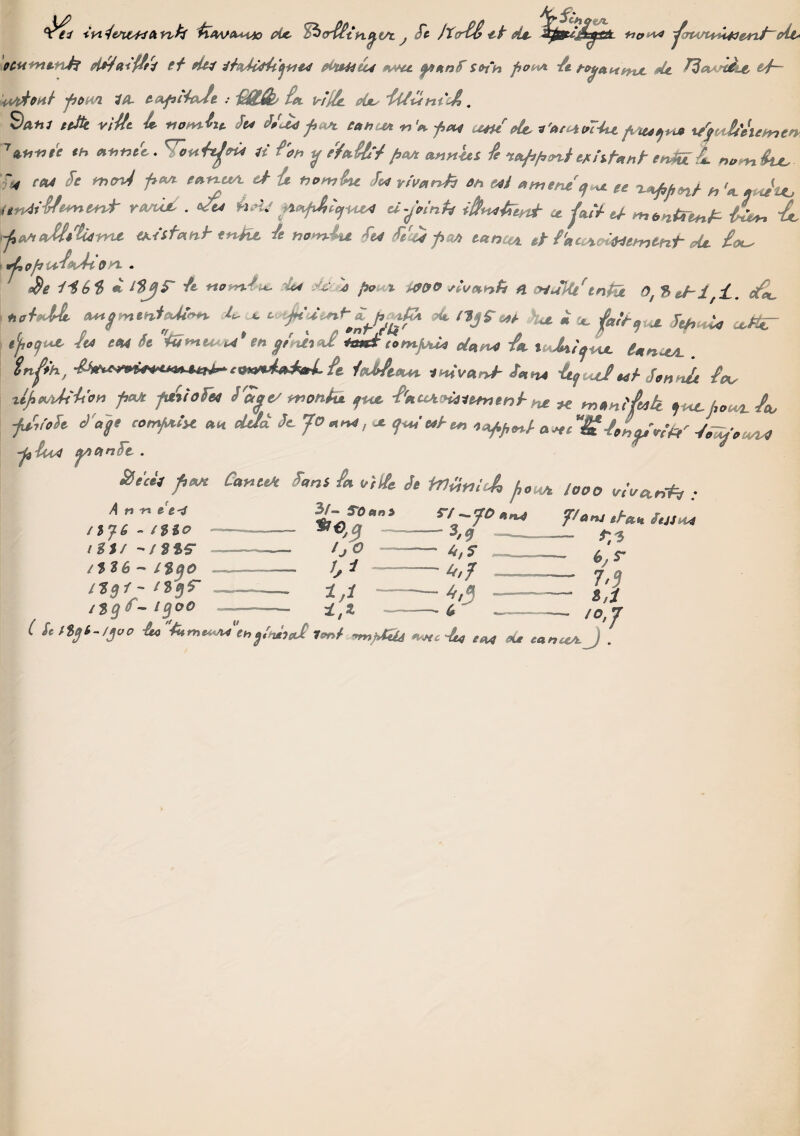 Les intéressants travaux de Bollinger, de Kolb et de Aschinger nous fournissent des
documents détaillés et des statistiques dressées avec grand soin pour le royaume de Bavière et
surtout pour sa capitale : la ville de Münich.
Dans cette ville le nombre des décès par cancer n'a pas cessé de s'accroître presque régulièrement
d'année en année. Toutefois si l'on y établit par années le rapport existant entre le nombre
des cas de mort par cancer et le nombre des vivants on est amené à que ce rapport n'a guère
sensiblement varié. Les trois graphiques ci-joints illustrent ce fait et montrent bien le
parallélisme existant entre le nombre des décès par cancer et l'accroissement de la
population.
De 1868 à 1895 le nombre des décès pour 1000 vivants a oscillé entre 0,8 et 1,1. La
notable augmentation de ce coefficient à partir de 1895 est due à ce fait que depuis cette
époque les cas de "tumeurs" en général ont été compris dans la rubrique cancer.
Enfin, le tableau suivant dans lequel est donnée la
répartition par périodes d'âge montre que l'accroissement ne se manifeste que pour la
période d'âge comprise au delà de 70 ans, ce qui est en rapport avec la longévité toujours
plus grande.
Décès par Cancer dans la ville de Münich pour 1000 vivants :
Années 31–50 ans 51–70 ans 71 ans et au dessus
1876 - 1880 0,9 3,9 5,3
1881 - 1885 1,0 4,5 6,5
1886 - 1890 1,1 4,7 7,9
1891 - 1895 1,1 4,9 8,1
1896 - 1900 1,2 6 10,7
( de 1896-1900 les "tumeurs" en général sont comptées avec les cas de cancer ).